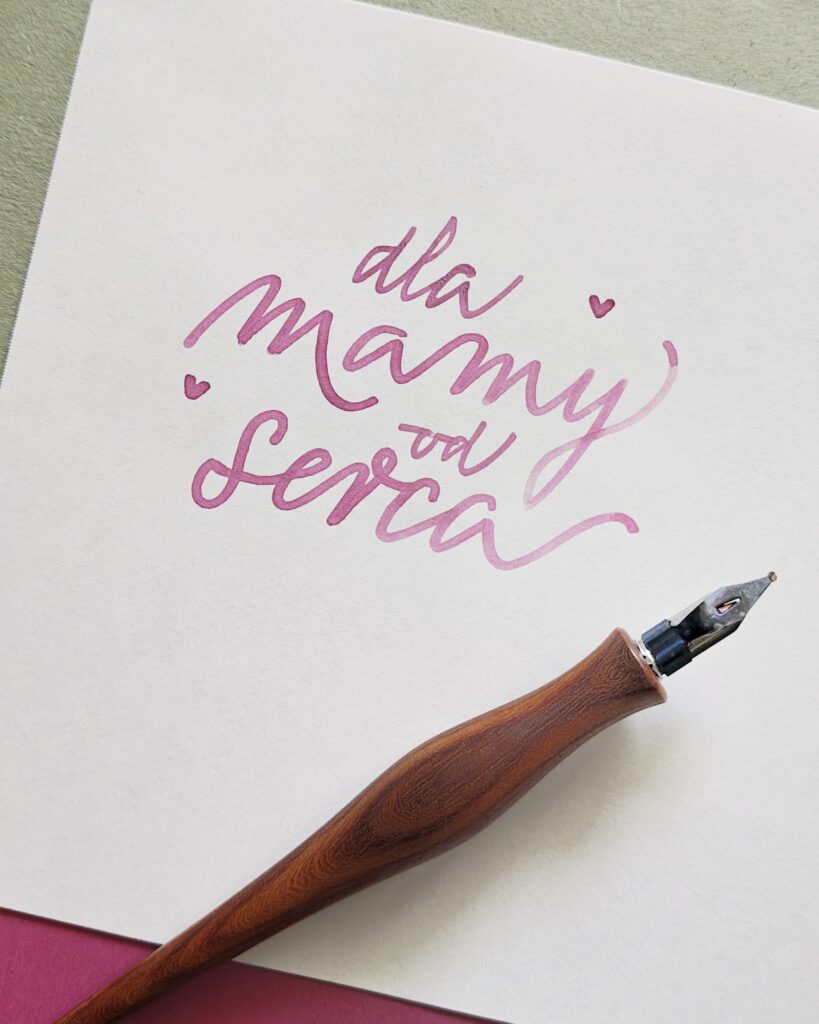 dla
mamy
od
serca